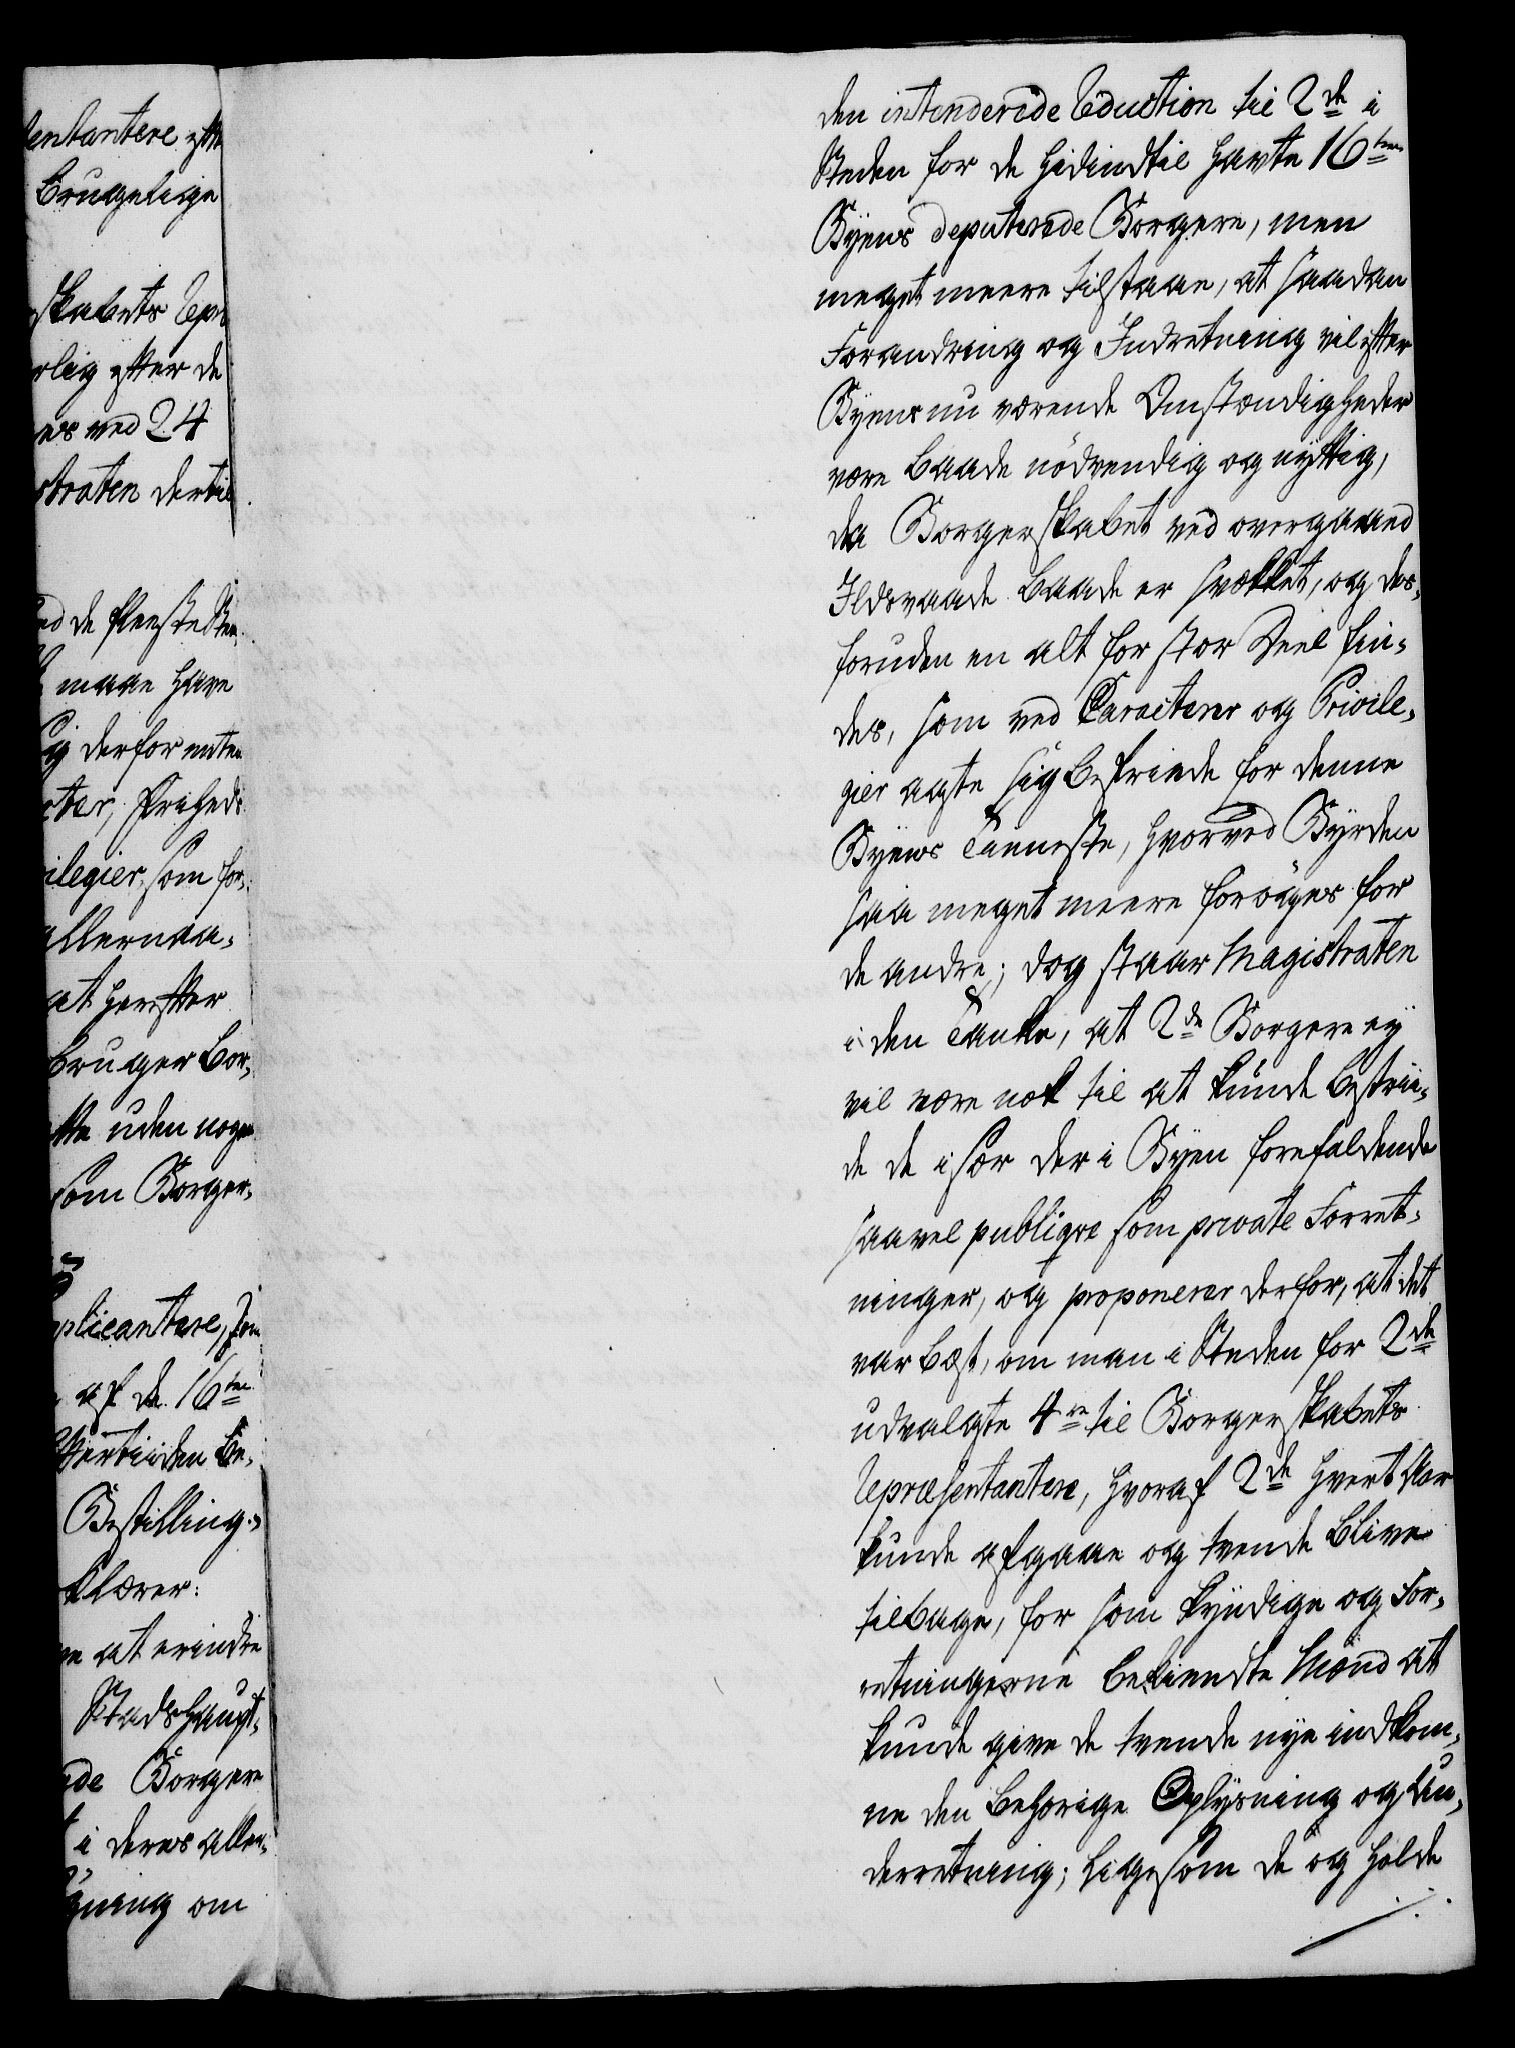 entantere efter
Brugelige
skabets Repr
rlig efter de
es ved 24
straten dertil
ed de fleeste Stæ
maae have
sig derfor enten
cter, Friheds
ilegier, som for,,
allernaa,,
at herefter
bruger Bor,,
uden nogen
som Borger,
plicantere, som
af de 16ten
tertiiden be,,
Bestilling,,
klærer:
e at erindre
Stadshaupt,
de Borgere
i deres aller,
gning om
den intenderede Reduction til 2de i
Steden for de hidindtil havte 16ten
Byens deputerede Borgere, men
meget meere tilstaae, at saadan
Forandring og Indretning vil efter
Byens nu værende Omstændigheder
være baade nödvendig og nyttig,
da Borgerskabet ved overgaaed
Ildsvaade baade er svækket, og des,
foruden en alt for stor Deel fin,
des, som ved Caracterer og Privile,
gier agte sig befriede for denne
Byens Tienneste, hvorved Byrden
saa meget meere foröges for
de andre; dog staar Magistraten
i den Tanke, at 2de Borgere ey
vil være nok til at kunde bestrii,
de de i sær der i Byen forefaldende
saavel publiqve som private Forret,
ninger, og proponerer derfor, at det
var bæst, om man i Steden for 2de
udvalgte 4re til Borgerskabets
Repræsentantere, hvoraf 2de hvert Aar
kunde afgaae og tvende blive
tilbage, for som kyndige og For,
retningerne bekiendte Mænd at
kunde give de tvende nye indkom,
ne den behørige Oplysning og Un,
derretning; ligesom de og holde
./.